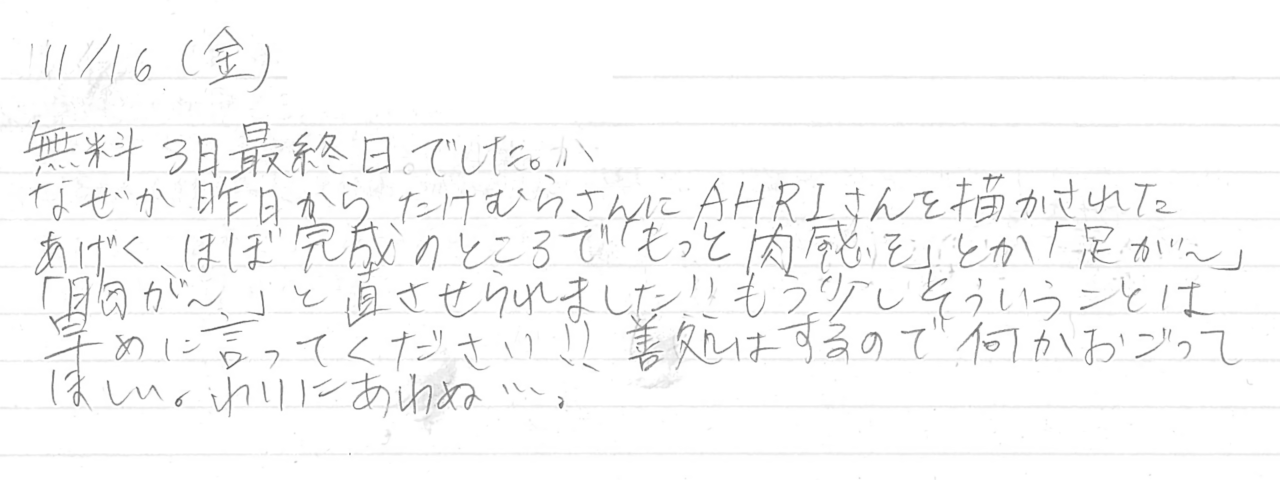 11/16（金）
無料3日最終日でした。
なぜか昨日からたけむらさんにAHRIさんを描かされた
あげく、ほぼ完成のところで「もっと肉感を」とか「足が〜」
「胸が〜」と直させられました!!もう少しそういうことは
早めに言ってください!!善処はするので何かおごって
ほしい。わりにあわぬ…。